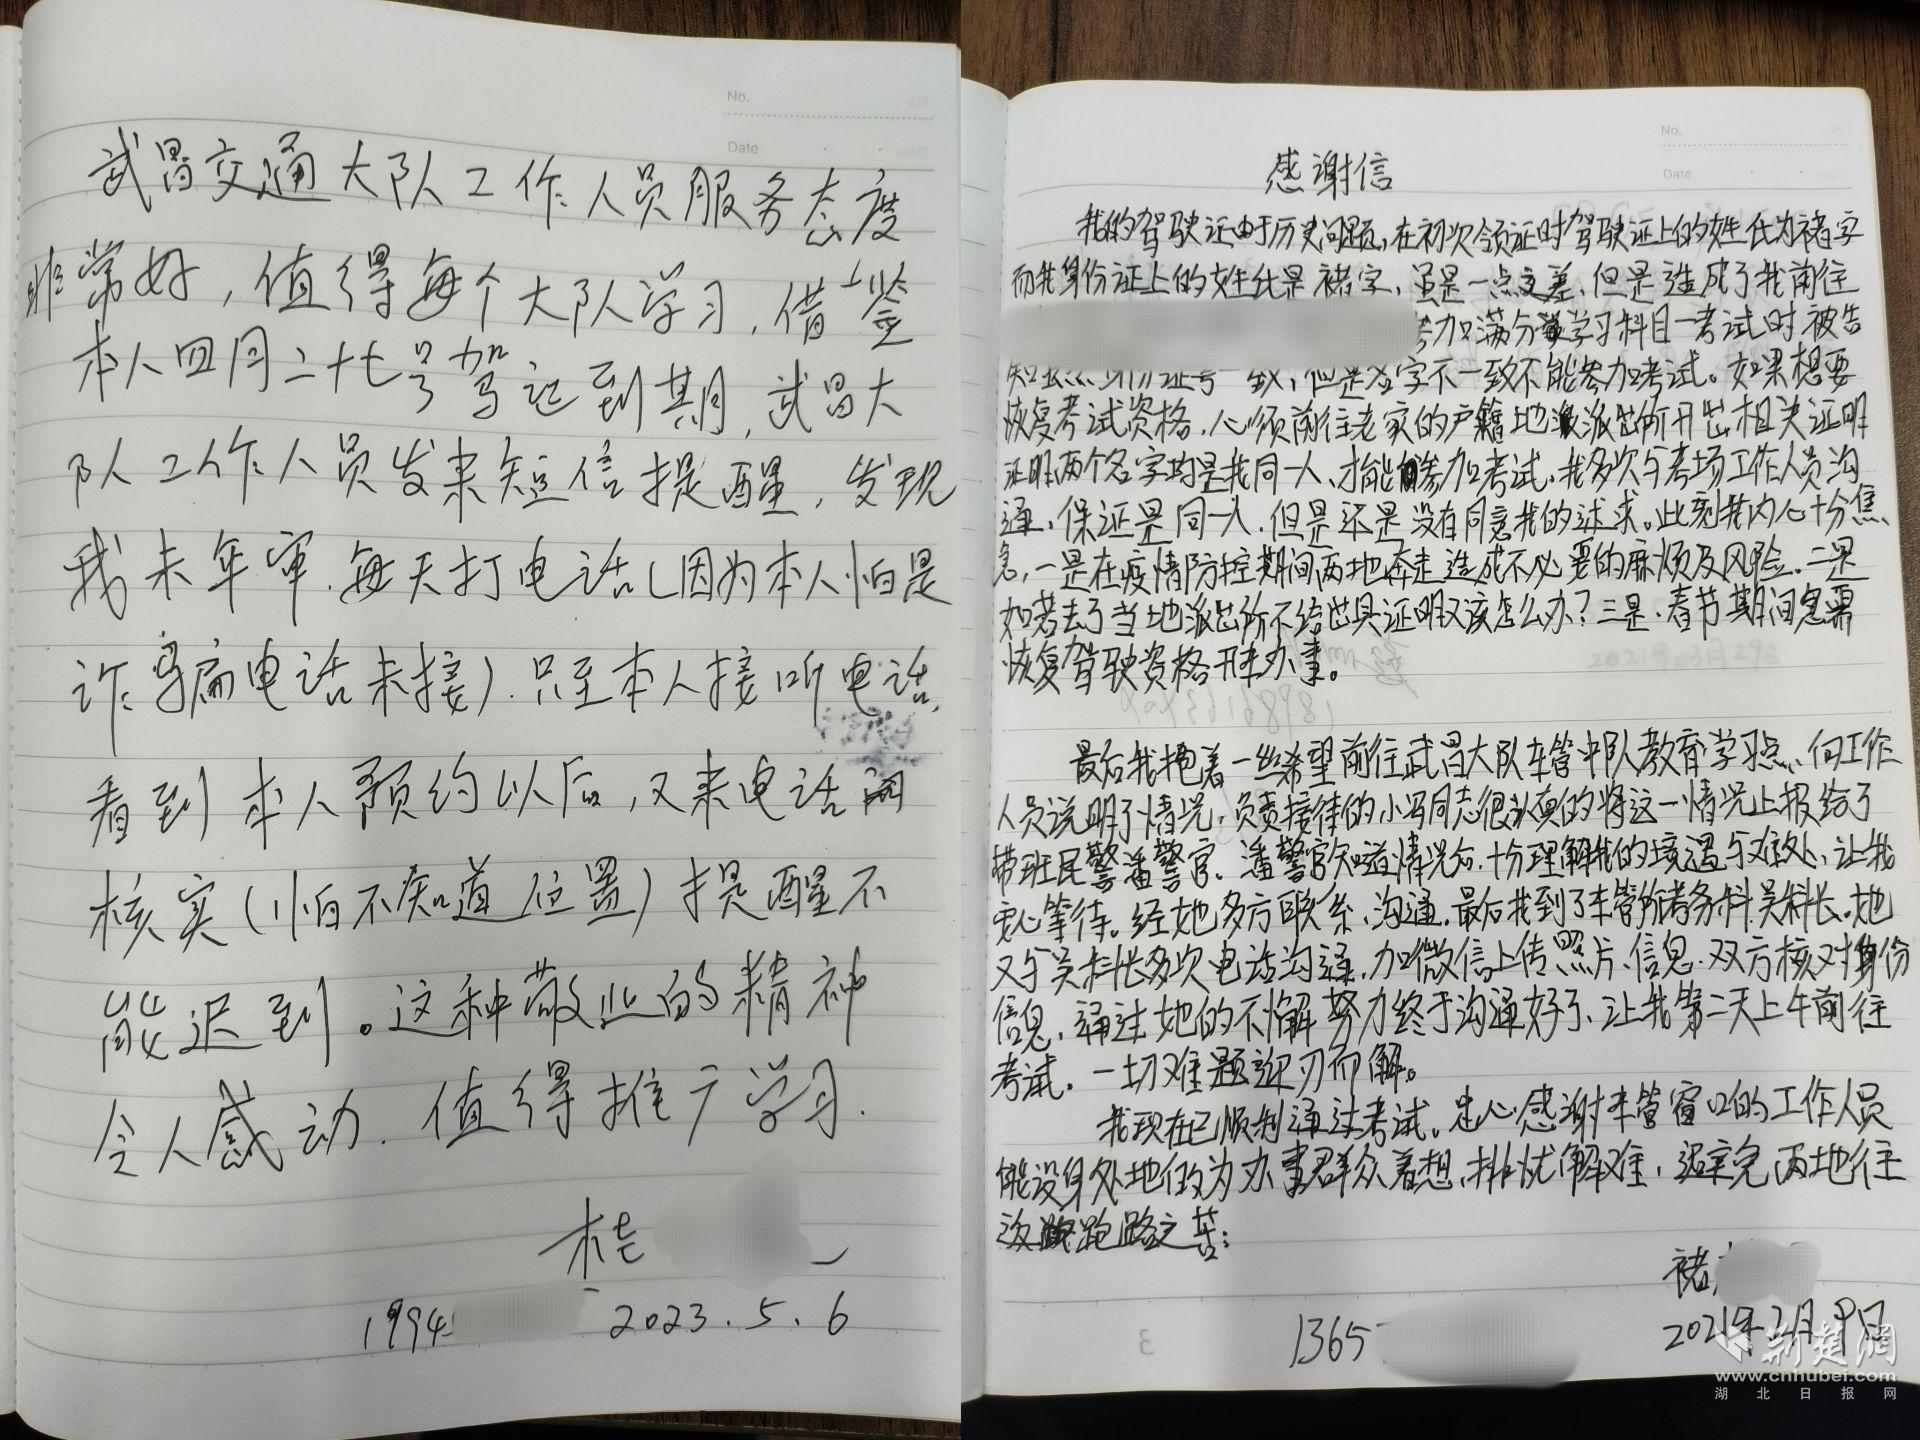 No.
Date
武昌交通大队工作人员服务态度
非常好，值得每个大队学习，借鉴
本人四月二十七号驾证到期，武昌大
队工作人员发来短信提醒，发现
我未年审，每天打电话（因为本人怕是
诈骗电话未接）．只至本人接听电话，
看到本人预约以后，又来电话
核实（怕不知道位置）提醒不
能迟到。这种敬业的精神
令人感动．值得推广学习．
桂
1994
2023.5.6
No.
Date
感谢信
我的驾驶证由于历史问题，在初次领证时驾驶证上的姓氏为褚字
而我身份证上的姓氏是褚字，虽是一点之差，但是造成了我前往
加满分学习科目一考试时被告
知虽然身份证号一致，但是名字不一致不能参加考试。如果想要
恢复考试资格，心须前往老家的户籍地派出所开出相关证明
证明两个名字均是我同一人、才能参加考试、我多次与考场工作人员沟
通，保证是同一人．但是还是没有同意我的诉求。此刻我内心十分焦
急，一是在疫情防控期间两地奔走造成不必要的麻烦及风险．二是
如若去了当地派出所不给出具证明又该怎么办？三是．春节期间急需
恢复驾驶资格开车办事。
最后我抱着一丝希望前往武昌大队车管中队教育学习点、向工作
人员说明了情况，负责接待的小冯同志很认真的将这一情况上报给了
带班民警潘警官、潘警官知道情况后，十分理解我的境遇与难处、让我
安心等待。经她多方联系，沟通，最后找到了车管所考务科吴科长。她
又与吴科长多次电话沟通，加微信上传照片、信息．双方核对身份
信息，通过她的不懈努力终于沟通好了、让我第二天上午前往
考试．一切难题迎刃而解。
我现在已顺利通过考试。忠心感谢车管窗口的工作人员
能设身处地的为办事群众着想，排忧解难，避免两地往
返跑路之苦；
褚
1365
2021年2月9日
3
荆楚网
www.cnhubei.com
湖北日报网